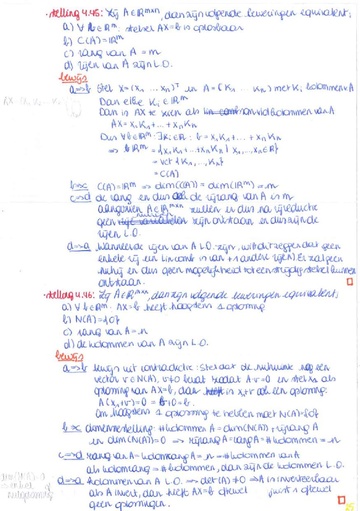 · stelling 4.45: Zij A∈ℝᵐˣⁿ, dan zijn volgende beweringen equivalent:
a) ∀ b∈ℝᵐ: stelsel AX=b is oplosbaar
b) C(A)=ℝᵐ
c) rang van A = m
d) rijen van A zijn L.O.
bewijs
a⇒b Stel X=(x₁ ... xₙ)ᵀ en A=(K₁ ... Kₙ) met Kᵢ kolommen v A
Dan elke Kᵢ∈ℝᵐ
Dan is AX te zien als van kolommen van A
AX = x₁K₁+...+xₙKₙ
Dus ∀b∈ℝᵐ: b = x₁K₁+...+xₙKₙ
⇒ ℝᵐ = {x₁K₁+...+xₙKₙ | x₁...xₙ∈ℝ}
= vct {K₁,...,Kₙ}
= C(A)
b⇒c C(A)=ℝᵐ ⇒ dim(C(A)) = dim(ℝᵐ) = m
c⇒d de rang en dus ook de rijrang van A is m
aangezien A∈ℝᵐˣⁿ zullen er dus na rijreductie
geen nulrijen zijn ontstaan en dus zijn de
rijen L.O.
d⇒a Wanneer de rijen van A L.O. zijn, wil dit zeggen dat geen
enkele rij een lin comb is van andere rijen. Er zal geen
nulrij en dus geen mogelijkheid tot een strijdig stelsel kunnen
ontstaan.
· stelling 4.46: Zij A∈ℝᵐˣⁿ, dan zijn volgende beweringen equivalent:
a) ∀ b∈ℝᵐ: AX=b heeft hoogstens 1 oplossing
b) N(A)={0}
c) rang van A = n
d) de kolommen van A zijn L.O.
bewijs
a⇒b bewijs uit contradictie: stel dat de nulruimte nog een
vector v∈N(A), v≠0 bevat zodat Av=0 en stel x₁ als
oplossing van AX=b, dan is x₁+v ook een oplossing:
A(x₁+v) = b+0 = b.
Om hoogstens 1 oplossing te hebben moet N(A)={0}
b⇒c dimensiestelling: #kolommen A = dim(N(A)) + rijrang A
en dim(N(A))=0 ⇒ rijrang A = rang A = #kolommen = n
c⇒d rang van A = kolomrang A = n = #kolommen van A
als kolomrang = #kolommen, dan zijn de kolommen L.O.
d⇒a kolommen van A L.O. ⇒ det(A)≠0 ⇒ A is inverteerbaar
als A invert, dan heeft AX=b ofwel juist 1 ofwel
geen oplossingen.